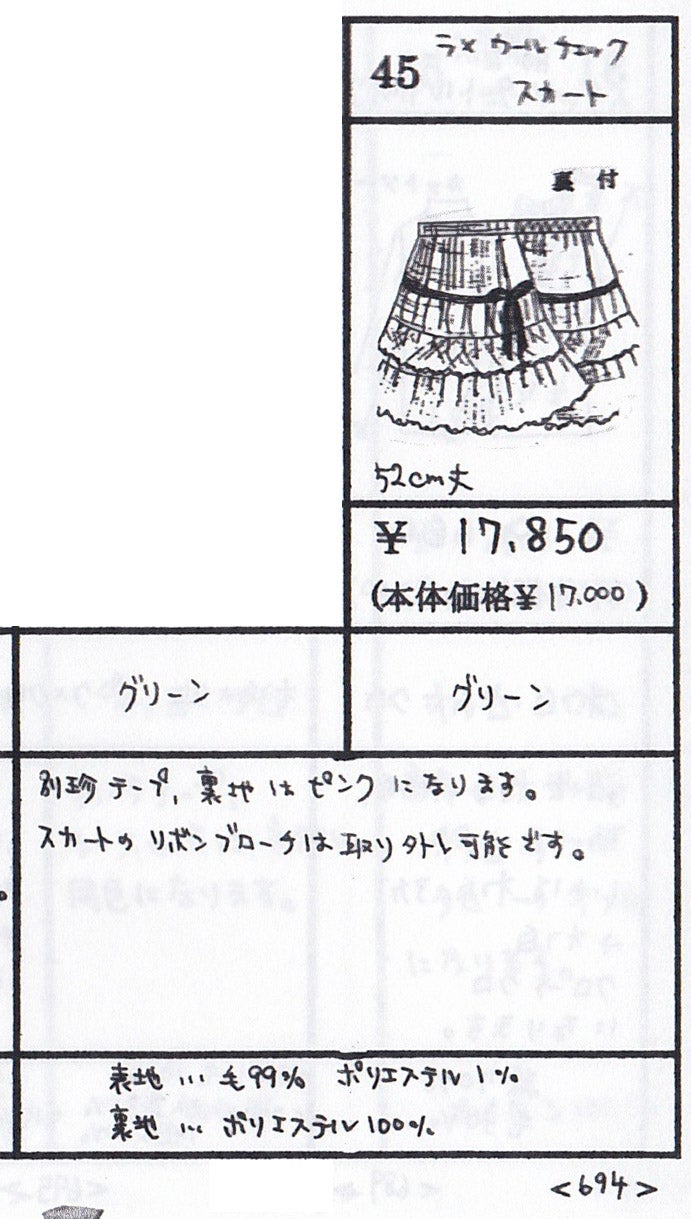 45 ラメ ウールチェック
スカート
裏 付
52cm丈
¥ 17,850
(本体価格¥ 17,000 )
グリーン
グリーン
別珍テープ、裏地はピンクになります。
スカートのリボンブローチは取り外し可能です。
。
表地 … 毛99% ポリエステル1%
裏地 … ポリエステル100%
<694>